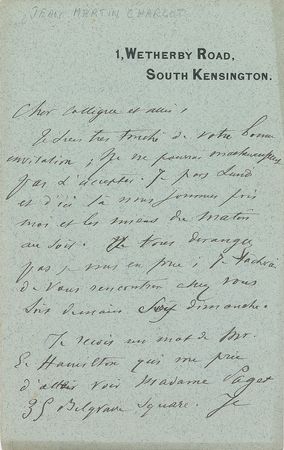 JEAN MARTIN CHARCOT
1, WETHERBY ROAD,
SOUTH KENSINGTON.
Cher collègue et ami,
très touché de votre bonne
invitation, je ne pourrai malheureusement
pas l'accepter. Je pars Lundi
et d'ici là nous sommes pris
moi et les miens du matin
au soir. Ne vous dérangez
pas je vous en prie ; Je tâcherai
de vous rencontrer chez vous
soit demain soit dimanche.
Je reçois un mot de Mr.
E Hamilton qui me prie
d'aller voir Madame Paget
35 Belgrave Square. Je